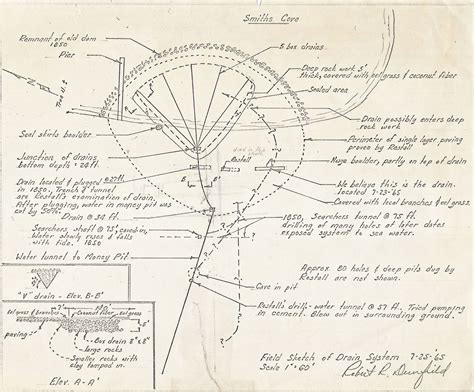 Smiths Cove
Remnant of old dam
1850
Pier
5 box drains
Deep rock work 5'
thick, covered with eel grass & coconut fiber
Sealed area
Drain possibly enters deep
rock work
Seal skirts boulder
Perimeter of single layer paving
proven by Restall
Huge boulder, partly on top of drain
Restall
Junction of drains
bottom depth ± 28 ft.
Drain located & plugged @ 27 ft.
in 1850. Trench & tunnel
are Restall's examination of drain.
After plugging, water in money pit was
cut by 50%.
We believe this is the drain
located 7-23-65
Covered with local branches & eel grass
Drain @ 34 ft.
Searchers, shaft @ 75', caved-in,
Water slowly rises & falls
with tide. 1850
1850, Searchers tunnel @ 75 ft.
drilling of many holes at later dates
exposed system to sea water.
Water tunnel to Money Pit
Approx. 80 holes & deep pits dug by
Restall are not shown.
Cave in pit
Restall's drill-water tunnel @ 57 ft. Tried pumping
in cement. Blow out in surrounding ground.
"V" drain - Elev. B-B'
Eel grass & branches
Coconut fiber
Eel grass
paving
5'
Box drain
large rocks
Smaller rocks with
clay tamped in.
Elev. A-A'
Field Sketch of Drain System 7-25-65
Scale 1" = 60'
Robert R. Dunfield